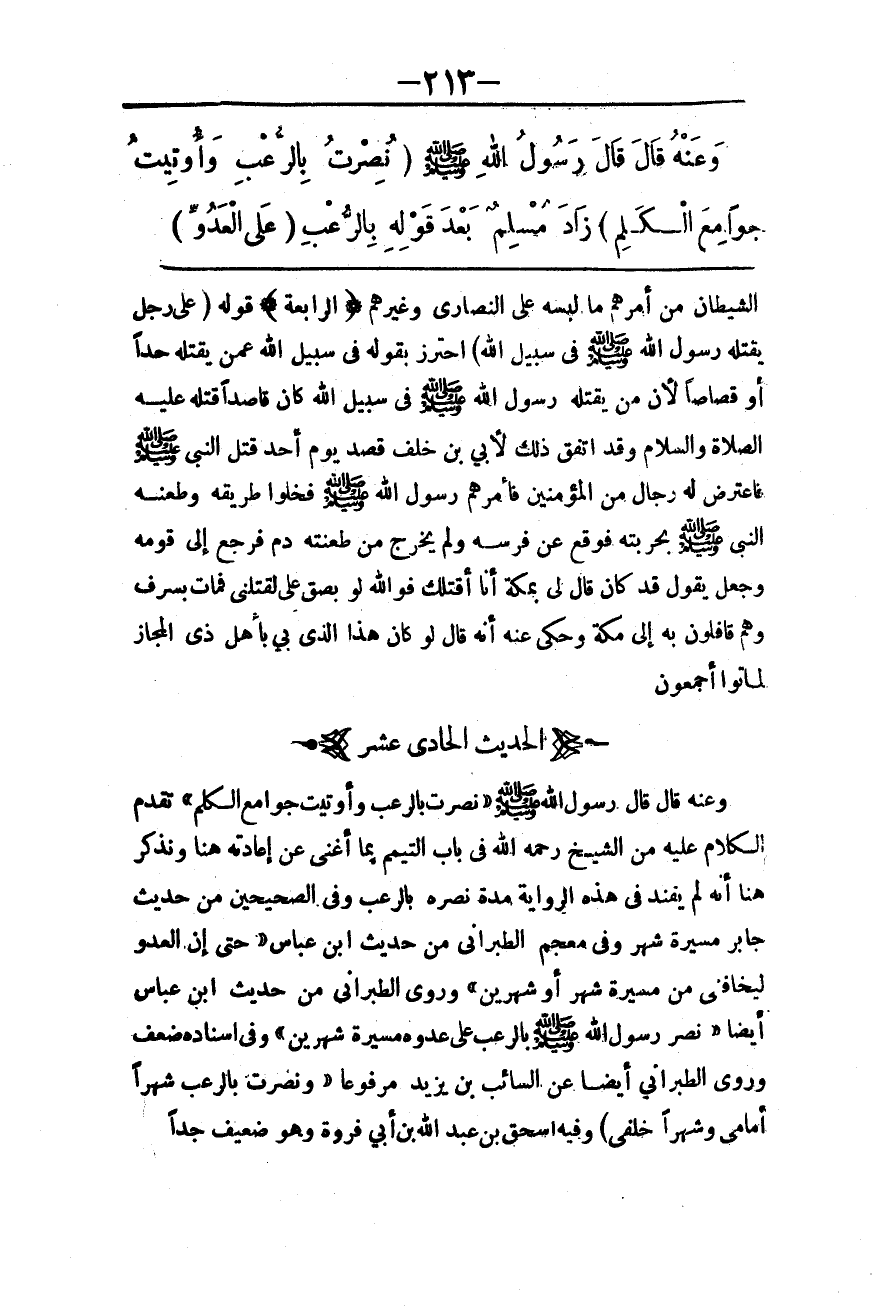 -٢١٣-
وَعَنْهُ قَالَ قَالَ رَسُولُ اللهِ ﷺ ( نُصِرْتُ بِالرُّعْبِ وَأُوتِيتُ
جَوَامِعَ الْـكَـلِمِ ) زَادَ مُسْلِمٌ بَعْدَ قَوْلِهِ بِالرُّعْبِ ( عَلَى الْعَدُوِّ )
الشيطان من أمرهم ما لبسه على النصارى وغيرهم ﴿ الرابعة ﴾ قوله ( على رجل
يقتله رسول الله ﷺ فى سبيل الله) احترز بقوله فى سبيل الله عمن يقتله حداً
أو قصاصاً لأن من يقتله رسول الله ﷺ فى سبيل الله كان قاصداً قتله عليـه
الصلاة والسلام وقد اتفق ذلك لأبي بن خلف قصد يوم أحد قتل النبى ﷺ
فاعترض له رجال من المؤمنين فأمرهم رسول الله ﷺ فخلوا طريقه وطعنـه
النبى ﷺ بحربته فوقع عن فرسـه ولم يخرج من طعنته دم فرجع إلى قومه
وجعل يقول قد كان قال لى بمكة أنا أقتلك فوالله لو بصق على لقتلنى فمات بسرف
وهم قافلون به إلى مكة وحكى عنه أنه قال لو كان هذا الذى بي بأهل ذى المجاز
لماتوا أجمعون
الحديث الحادى عشر
وعنه قال قال رسول الله ﷺ «نصرت بالرعب وأوتيت جوامع الـكلم» تقدم
الـكلام عليه من الشيـخ رحمه الله فى باب التيمم بما أغنى عن إعادته هنا ونذكر
هنا أنه لم يفند فى هذه الرواية مدة نصره بالرعب وفى الصحيحين من حديث
جابر مسيرة شهر وفى معجم الطبرانى من حديث ابن عباس« حتى إن العدو
ليخافنى من مسيرة شهر أو شهرين» وروى الطبرانى من حديث ابن عباس
أيضا« نصر رسول الله ﷺ بالرعب على عدوه مسيرة شهرين» وفى اسناده ضعف
وروى الطبراني أيضـا عن السائب بن يزيد مرفوعا « ونصرت بالرعب شهراً
أمامى وشهراً خلفى) وفيه اسحق بن عبد الله بن أبي فروة وهو ضعيف جداً